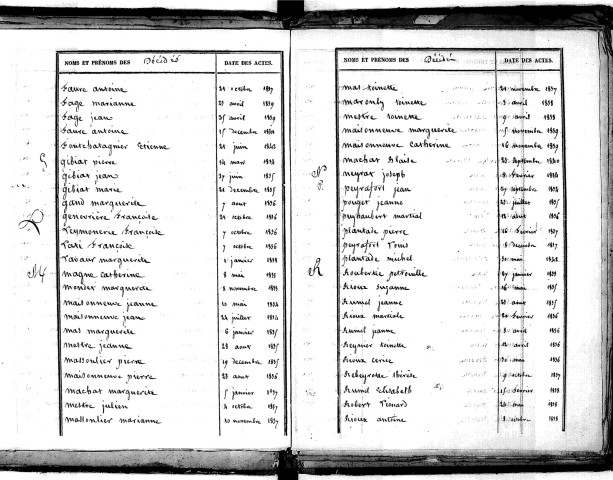 NOMS ET PRÉNOMS DES Décédés DATE DES ACTES.
faure antoine 21 octobre 1837
fage marianne 21 avril 1839
fage jean 25 avril 1839
faure antoine 15 décembre
fautcharagnier Etienne 21 juin
G
gibiat pierre 14 mars 1838
gibiat jean 27 juin 1835
gibiat marie 21 décembre 1835
gand marguerite 7 aout 1836
genevrière françoise 21 octobre 1836
L
Leymonerie françoise 7 octobre 1836
Lari françoise 7 octobre 1836
Lavaur marguerite janvier 1838
M
magne Catherine 8 mai 1835
mender marguerite 8 novembre
maisonneuve jeanne 20 mai 1834
maisonneuve jean 24 juillet
mas marguerite 6 janvier 1835
mestre jeanne 28 aout 1835
massoulier pierre 19 décembre 1835
maisonneuve pierre 23 aout 1836
machat marguerite 5 janvier 1837
mestre julien 4 octobre 1837
massoulier marianne 20 novembre 1837
NOMS ET PRÉNOMS DES Décédés DATE DES ACTES.
mas toinette 21 novembre 1837
toinette avril 1838
mestre toinette 9 avril 1838
maisonneuve marguerite 15 novembre 1839
maisonneuve Catherine 16 novembre 1839
machat blaise 23 septembre 1840
N
neyrat joseph février
P
peyrafort jean 27 septembre
pouget jeanne juillet 1835
puyhaubert martial aout 1836
plantade pierre 16 février 1837
peyrafort Louis décembre 1837
plantade michel mai
R
Roubertie petronille 27 janvier
Rioux suzanne mai 1835
jeanne aout 1835
Rioux février 1836
jeanne avril 1836
Reynier toinette avril 1836
mai 1836
octobre 1837
Elisabeth 15 février
Robert Léonard mai 1838
Rioux antoine octobre 1838